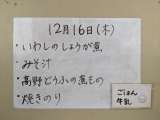 12月16日(木)
・いわしのしょうが煮
・みそ汁
・高野どうふの煮もの
・焼きのり
ごはん
牛乳